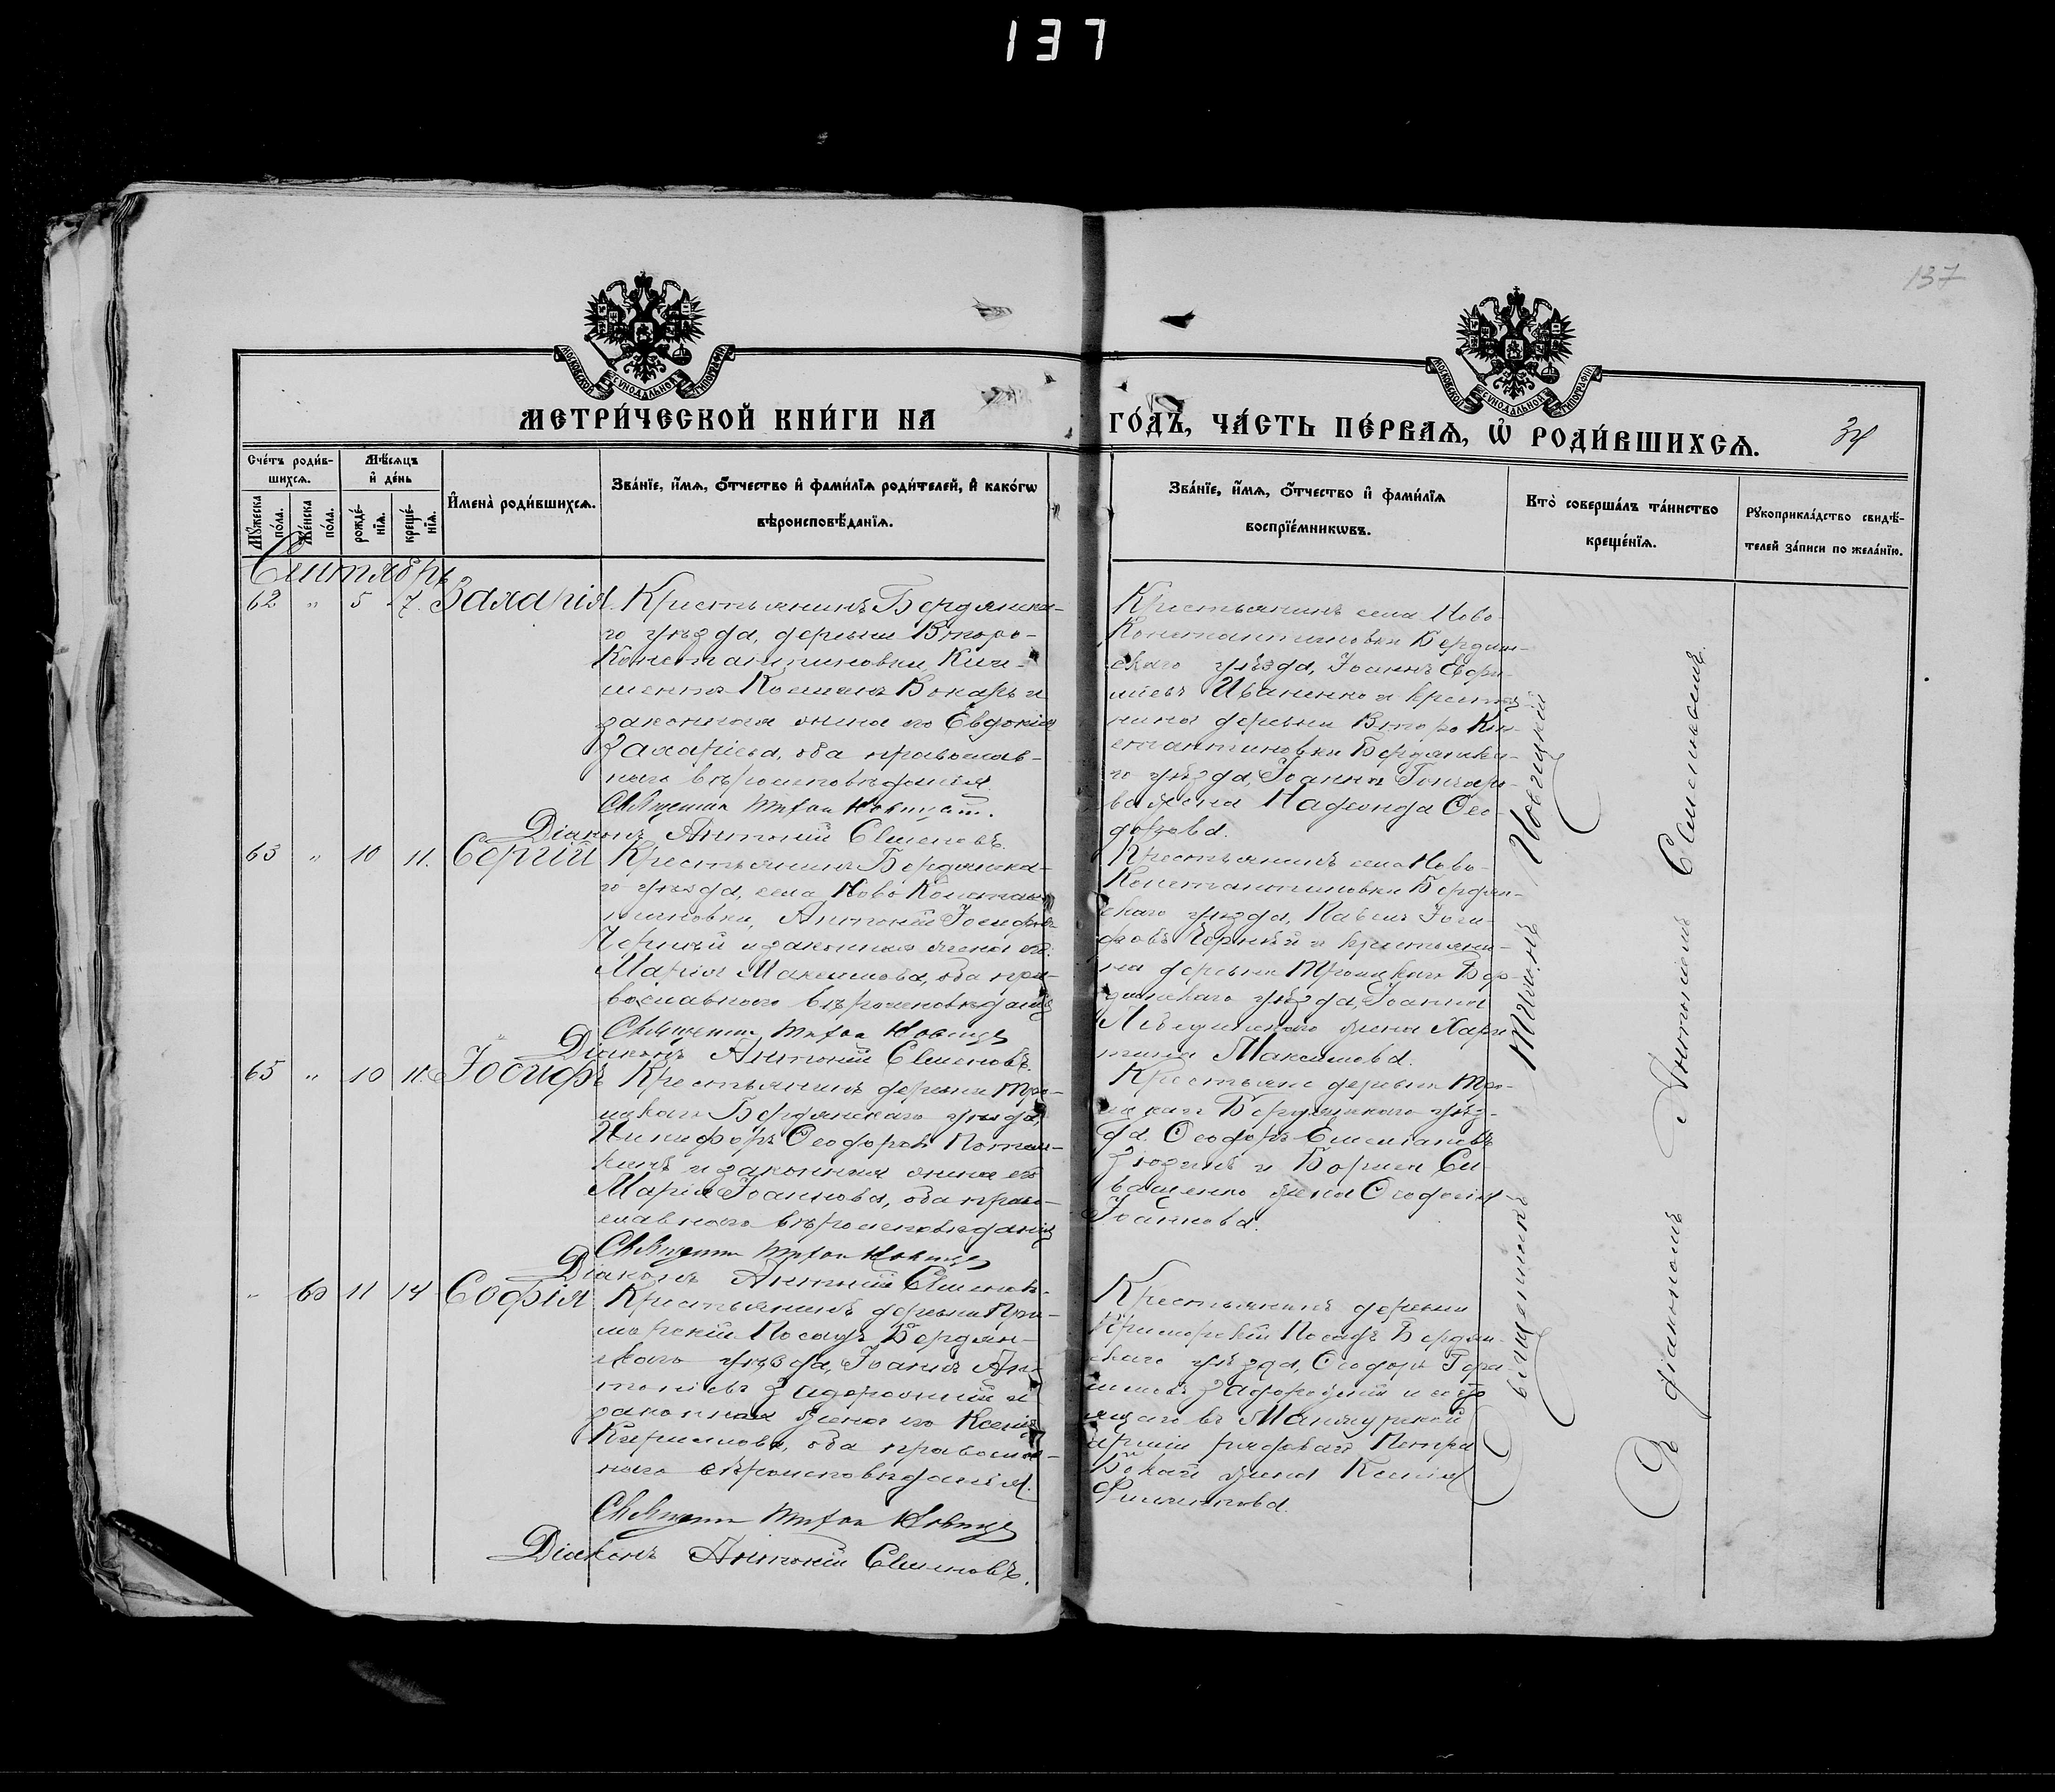 137
137
МОСКОВСКОЙ СѴНОДАЛЬНОЙ ТИПОГРАФІИ
МОСКОВСКОЙ СѴНОДАЛЬНОЙ ТИПОГРАФІИ
МЕТРИ́ЧЕСКОЙ КНИ́ГИ НА
ГО́ДЪ, ЧА́СТЬ ПЕ́РВАѦ, Ѡ҆ РОДИ́ВШИХСѦ.
Сче́тъ роди́в-
шихсѧ.
Мѣ́сѧцъ
и҆ де́нь
Мꙋ́жеска по́ла.
Же́нска по́ла.
рожде́-
нїѧ.
креще́-
нїѧ.
И҆мена̀ роди́вшихсѧ.
Зва́нїе, и҆́мѧ, ѻ҆́тчество и҆ фами́лїѧ роди́телей, и҆ како́гѡ
вѣроисповѣ́данїѧ.
Зва́нїе, и҆́мѧ, ѻ҆́тчество и҆ фами́лїѧ
воспрїе́мникѡвъ.
Кто̀ соверша́лъ та́инство
креще́нїѧ.
Рꙋкоприкла́дство свидѣ́-
телей за́писи по жела́нїю.
Сентябрь
62 " 5 7. Захарія. Крестьянинъ Бердянска-
го уѣзда, деревни Второ-
Константиновки, Кли-
мента Косьминъ Бокарь и
законная жена его Евдокія
Захаріева, оба православ-
наго вѣроисповѣданія.
Священник Тихон Новицкій.
Діаконъ Антоній Семеновъ.
Крестьянинъ села Ново-
Константиновки Бердян-
скаго уѣзда, Іоаннъ Ефи-
міевъ Иваненко и крестья-
нина деревни Второ Кон-
стантиновки Бердянска-
го уѣзда, Іоанна Гончаро-
ва жена Ѳео-
дорова.
63 " 10 11. Сергій Крестьянинъ Бердянска-
го уѣзда, села Ново Констан-
тиновки, Антоній Іосифовъ
Черный и законная жена его
Марія Максимова, оба пра-
вославнаго вѣроисповѣданія
Священник Тихон Новицкій
Діаконъ Антоній Семеновъ.
Крестьянинъ села Ново-
Константиновки Бердян-
скаго уѣзда, Павелъ Іоси-
фовъ Черный и крестьяни-
на деревни Троицкаго Бер-
дянскаго уѣзда, Іоанна
жена Хари-
тина Максимова.
65 " 10 11. Іосифъ Крестьянинъ деревни Тро-
ицкаго Бердянскаго уѣзда,
Никифоръ Ѳеодоровъ
и законная жена его
Марія Іоаннова, оба право-
славнаго вѣроисповѣданія
Священник Тихон Новицкій
Діаконъ Антоній Семеновъ.
Крестьяне деревни Тро-
ицкаго Бердянскаго уѣз-
да Ѳеодоръ Емеліановъ
и Бориса Си-
ващенко жена Ѳеодосія
Іоаннова.
" 60 11 14 Софія Крестьянинъ деревни При-
морскій Посадъ Бердян-
скаго уѣзда, Іоаннъ Ан-
тоніевъ Задорожній и
законная жена его Ксенія
Кипріанова, оба православ-
наго вѣроисповѣданія.
Священник Тихон Новицкій
Діаконъ Антоній Семеновъ.
Крестьянинъ деревни
Приморскій Посадъ Бердян-
скаго уѣзда, Ѳеодоръ Гера-
симовъ Задорожній и
въ Манчжурской
арміи рядового Петра
жена Ксенія
Филиппова.
Священникъ Тихонъ Новицкій
съ діакономъ Антоніемъ Семеновымъ.